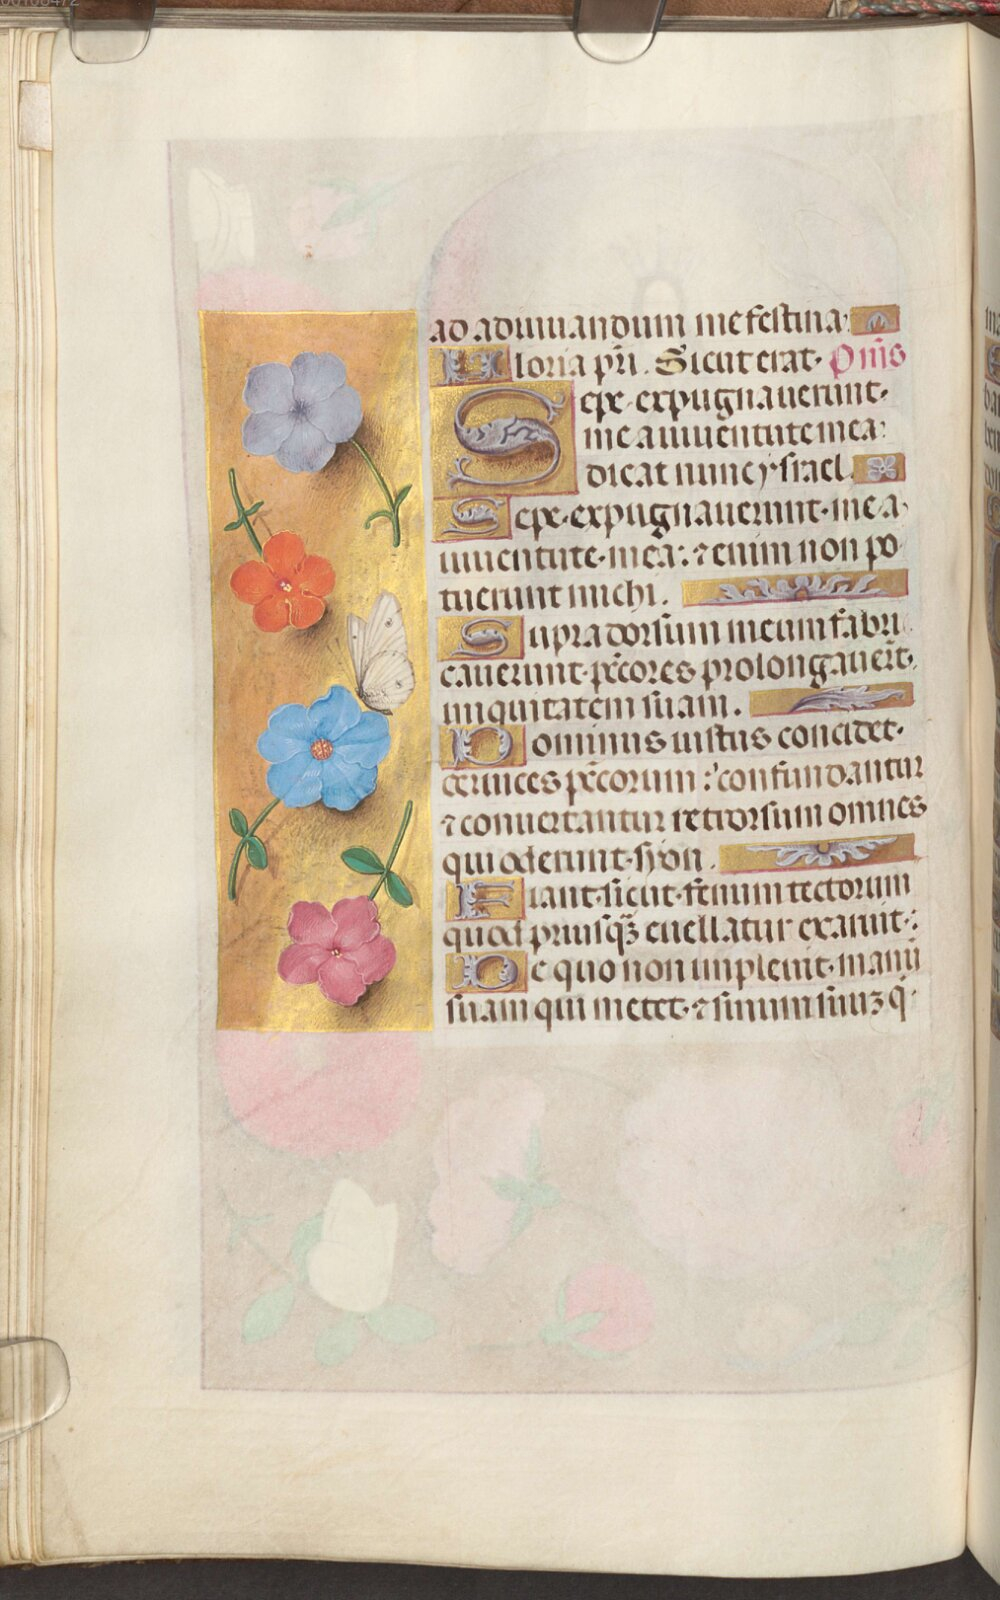 ad adiuuandum me festina.
Gloria pr̄i. Sicut erat. P̄m̄s
Sepe expugnauerunt
me a iuuentute mea:
dicat nunc ysrael.
Sepe expugnauerunt me a
iuuentute mea: ⁊ enim non po
tuerunt michi.
Supra dorsum meum fabri
cauerunt pc̄cores prolongauer̄t
iniquitatem suam.
Dominus iustus concidet
ceruices pc̄corum: confundantur
⁊ conuertantur retrorsum omnes
qui oderunt syon.
Fiant sicut fenum tectorum
quod priusqꝫ euellatur exaruit:
De quo non impleuit manū
suam qui metet ⁊ sinum suuꝫ q̇